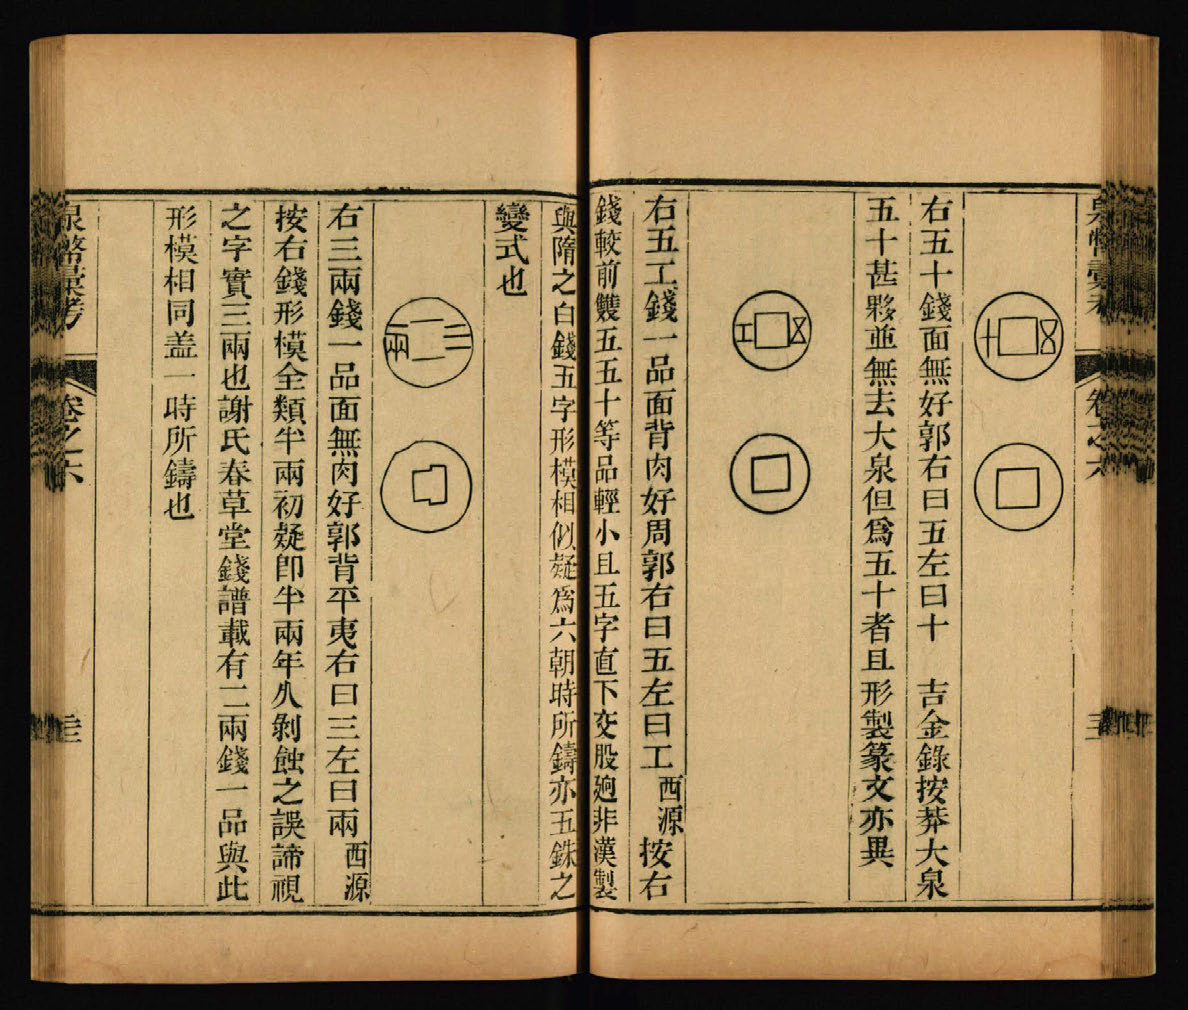 五
十
右五十錢面無好郭右曰五左曰十　吉金錄按莽大泉
五十甚夥並無去大泉但爲五十者且形製篆文亦異
五
工
右五工錢一品面背肉好周郭右曰五左曰工西源按右
錢較前雙五五十等品輕小且五字直下交股廻非漢製
與隋之白錢五字形模相似疑爲六朝時所鑄亦五銖之
變式也
三
兩
右三兩錢一品面無肉好郭背平夷右曰三左曰兩西源
按右錢形模全類半兩初疑卽半兩年久剝蝕之誤諦視
之字實三兩也謝氏春草堂錢譜載有二兩錢一品與此
形模相同盖一時所鑄也
泉幣彙考
卷之六